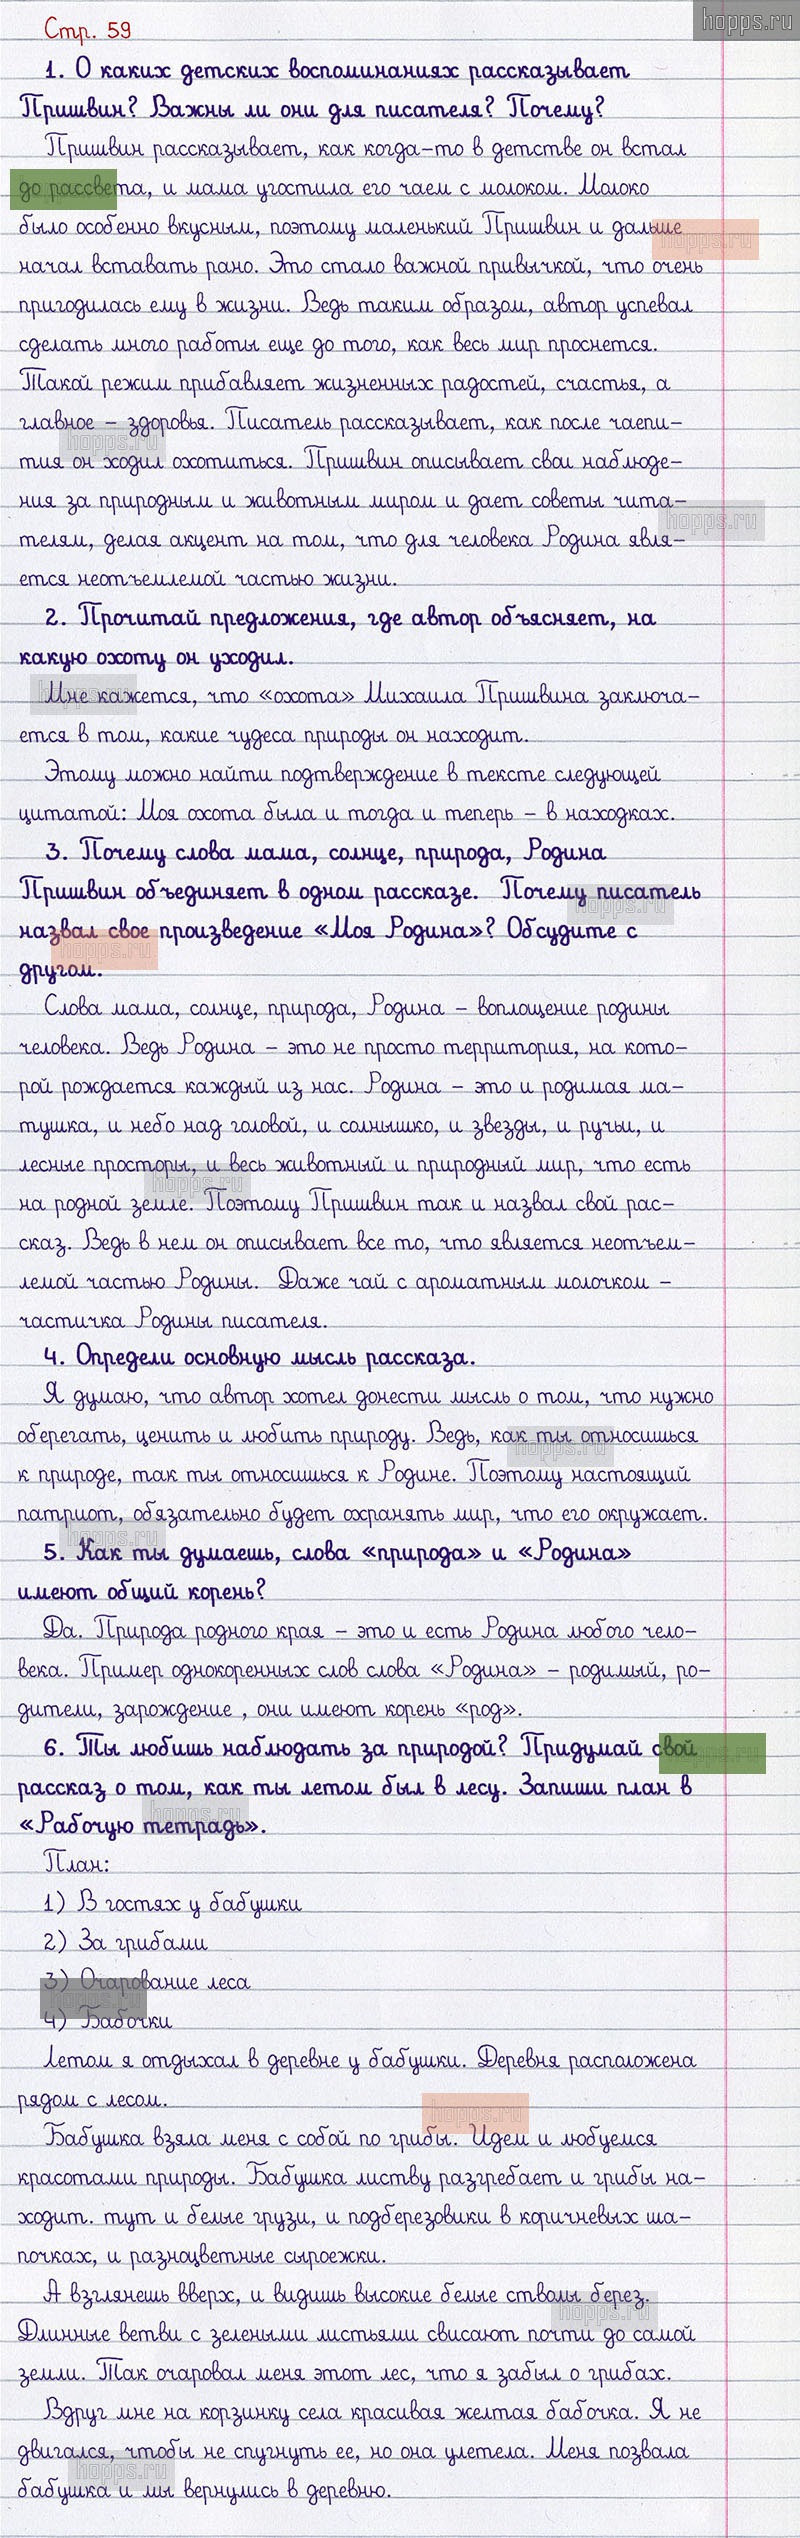 hopps.ru
Стр. 59
1. О каких детских воспоминаниях рассказывает
Пришвин? Важны ли они для писателя? Почему?
Пришвин рассказывает, как когда-то в детстве он встал
до рассвета, и мама угостила его чаем с молоком. Молоко
было особенно вкусным, поэтому маленький Пришвин и дальше
hopps.ru
начал вставать рано. Это стало важной привычкой, что очень
пригодилась ему в жизни. Ведь таким образом, автор успевал
сделать много работы еще до того, как весь мир проснется.
Такой режим прибавляет жизненных радостей, счастья, а
главное – здоровья. Писатель рассказывает, как после чаепи-
hopps.ru
тия он ходил охотиться. Пришвин описывает сваи наблюде-
ния за природным и животным миром и дает советы чита-
hopps.ru
телям, делая акцент на том, что для человека Родина явля-
ется неотъемлемой частью жизни.
2. Прочитай предложения, где автор объясняет, на
какую охоту он уходил.
Мне кажется, что «охота» Михаила Пришвина заключа-
hopps.ru
ется в том, какие чудеса природы он находит.
Этому можно найти подтверждение в тексте следующей
цитатой: Моя охота была и тогда и теперь – в находках.
3. Почему слова мама, солнце, природа, Родина
Пришвин объединяет в одном рассказе. Почему писатель
hopps.ru
назвал свое произведение «Моя Родина»? Обсудите с
hopps.ru
другом.
Слова мама, солнце, природа, Родина – воплощение родины
человека. Ведь Родина – это не просто территория, на кото-
рой рождается каждый из нас. Родина – это и родимая ма-
тушка, и небо над головой, и солнышко, и звезды, и ручьи, и
лесные просторы, и весь животный и природный мир, что есть
hopps.ru
на родной земле. Поэтому Пришвин так и назвал свой рас-
сказ. Ведь в нем он описывает все то, что является неотъем-
лемой частью Родины. Даже чай с ароматным молочком –
частичка Родины писателя.
4. Определи основную мысль рассказа.
Я думаю, что автор хотел донести мысль о том, что нужно
оберегать, ценить и любить природу. Ведь, как ты относишься
hopps.ru
к природе, так ты относишься к Родине. Поэтому настоящий
патриот, обязательно будет охранять мир, что его окружает.
hopps.ru
5. Как ты думаешь, слова «природа» и «Родина»
имеют общий корень?
Да. Природа родного края – это и есть Родина любого чело-
века. Пример однокоренных слов слова «Родина» – родимый, ро-
дители, зарождение , они имеют корень «род».
6. Ты любишь наблюдать за природой? Придумай свой
hopps.ru
рассказ о том, как ты летом был в лесу. Запиши план в
hopps.ru
«Рабочую тетрадь».
План:
1) В гостях у бабушки
2) За грибами
3) Очарование леса
hopps.ru
4) Бабочки
Летом я отдыхал в деревне у бабушки. Деревня расположена
рядом с лесом.
hopps.ru
Бабушка взяла меня с собой по грибы. Идем и любуемся
красотами природы. Бабушка листву разгребает и грибы на-
ходит. тут и белые грузи, и подберезовики в коричневых ша-
почках, и разноцветные сыроежки.
А взглянешь вверх, и видишь высокие белые стволы берез.
hopps.ru
Длинные ветви с зелеными листьями свисают почти до самой
земли. Так очаровал меня этот лес, что я забыл о грибах.
Вдруг мне на корзинку села красивая желтая бабочка. Я не
двигался, чтобы не спугнуть ее, но она улетела. Меня позвала
hopps.ru
бабушка и мы вернулись в деревню.